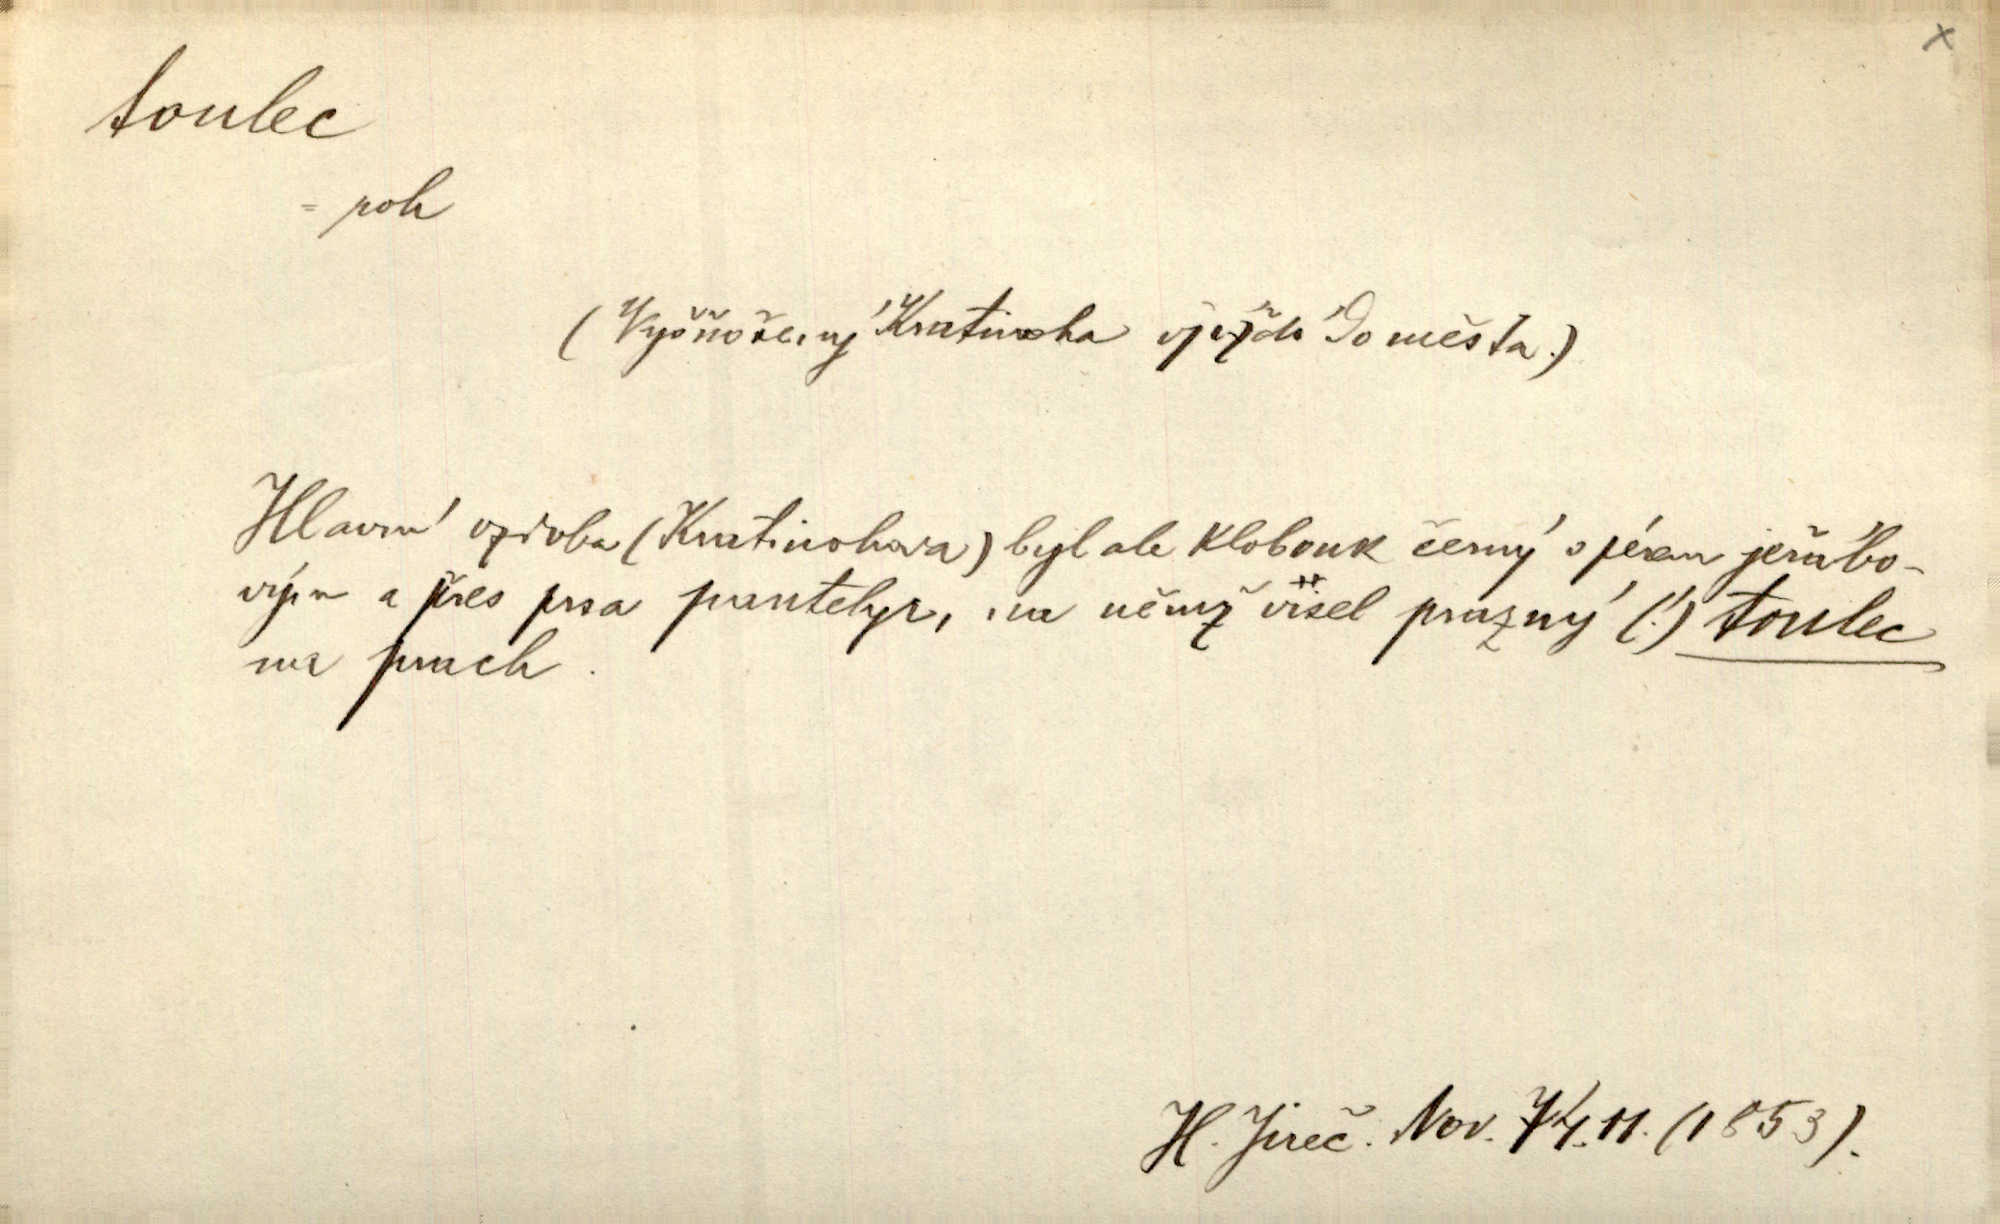 x
toulec
= roh
(Vyšňořený Kratinoha vjíždí do města.)
Hlavní ozdoba (Kratinohova) byl ale klobouk černý s pérem jeřábo-
vým a přes prsa pantelyr, na němž visel prazný (!) toulec
na prach.
H. Jireč. Nov. 74.11. (1853).